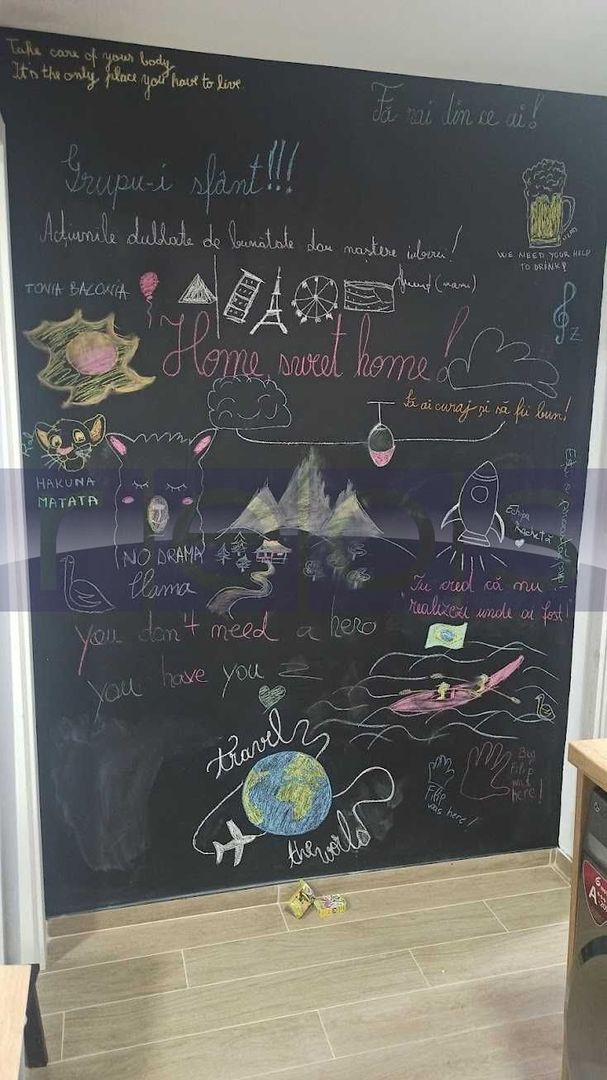 Take care of your body
It's the only place you have to live
Fă rai din ce ai!
Grupu-i sfânt!!!
Acțiunile dublate de bunătate dau naștere iubirii!
WE NEED YOUR HELP
TO DRINK!
TONIA BALONIA
Home, sweet home!
Să ai curaj și să fii bun!
HAKUNA
MATATA
NO DRAMA
llama
Echipa
Rachetă
Tu crezi că nu
realizezi unde ai fost!
you don't need a hero
you have you
travel
the world
Filip
was here!
Big
Filip
was
here!
A